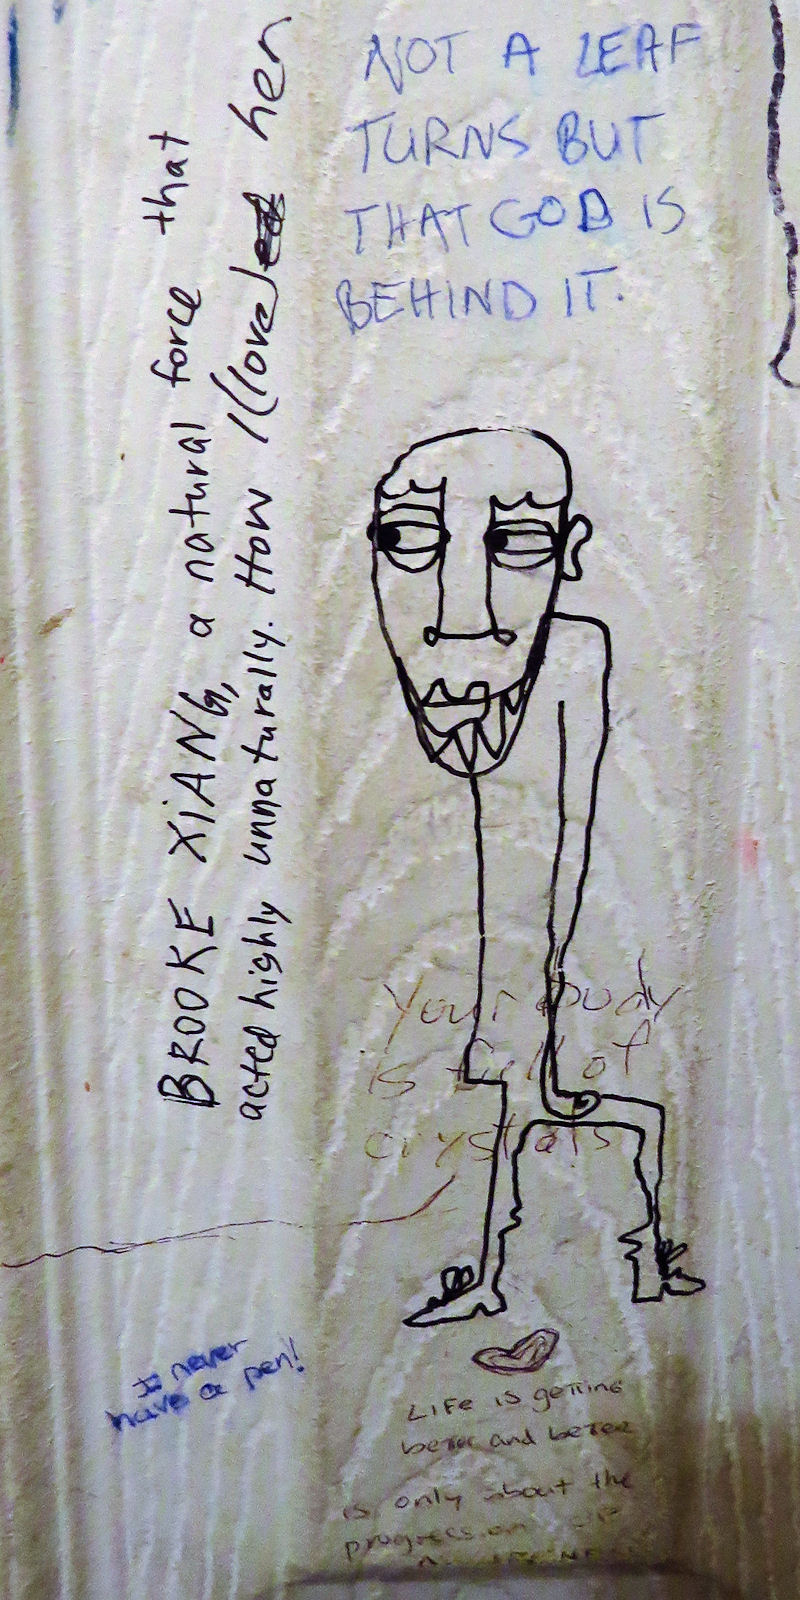 NOT A LEAF
TURNS BUT
THAT GOD IS
BEHIND IT.
BROOKE XIANG, a natural force that
acted highly unnaturally. How I love her
Your Body
is full of
crystals
I never
have a pen!
LIFE is getting
better and better
is only about the
progression OF